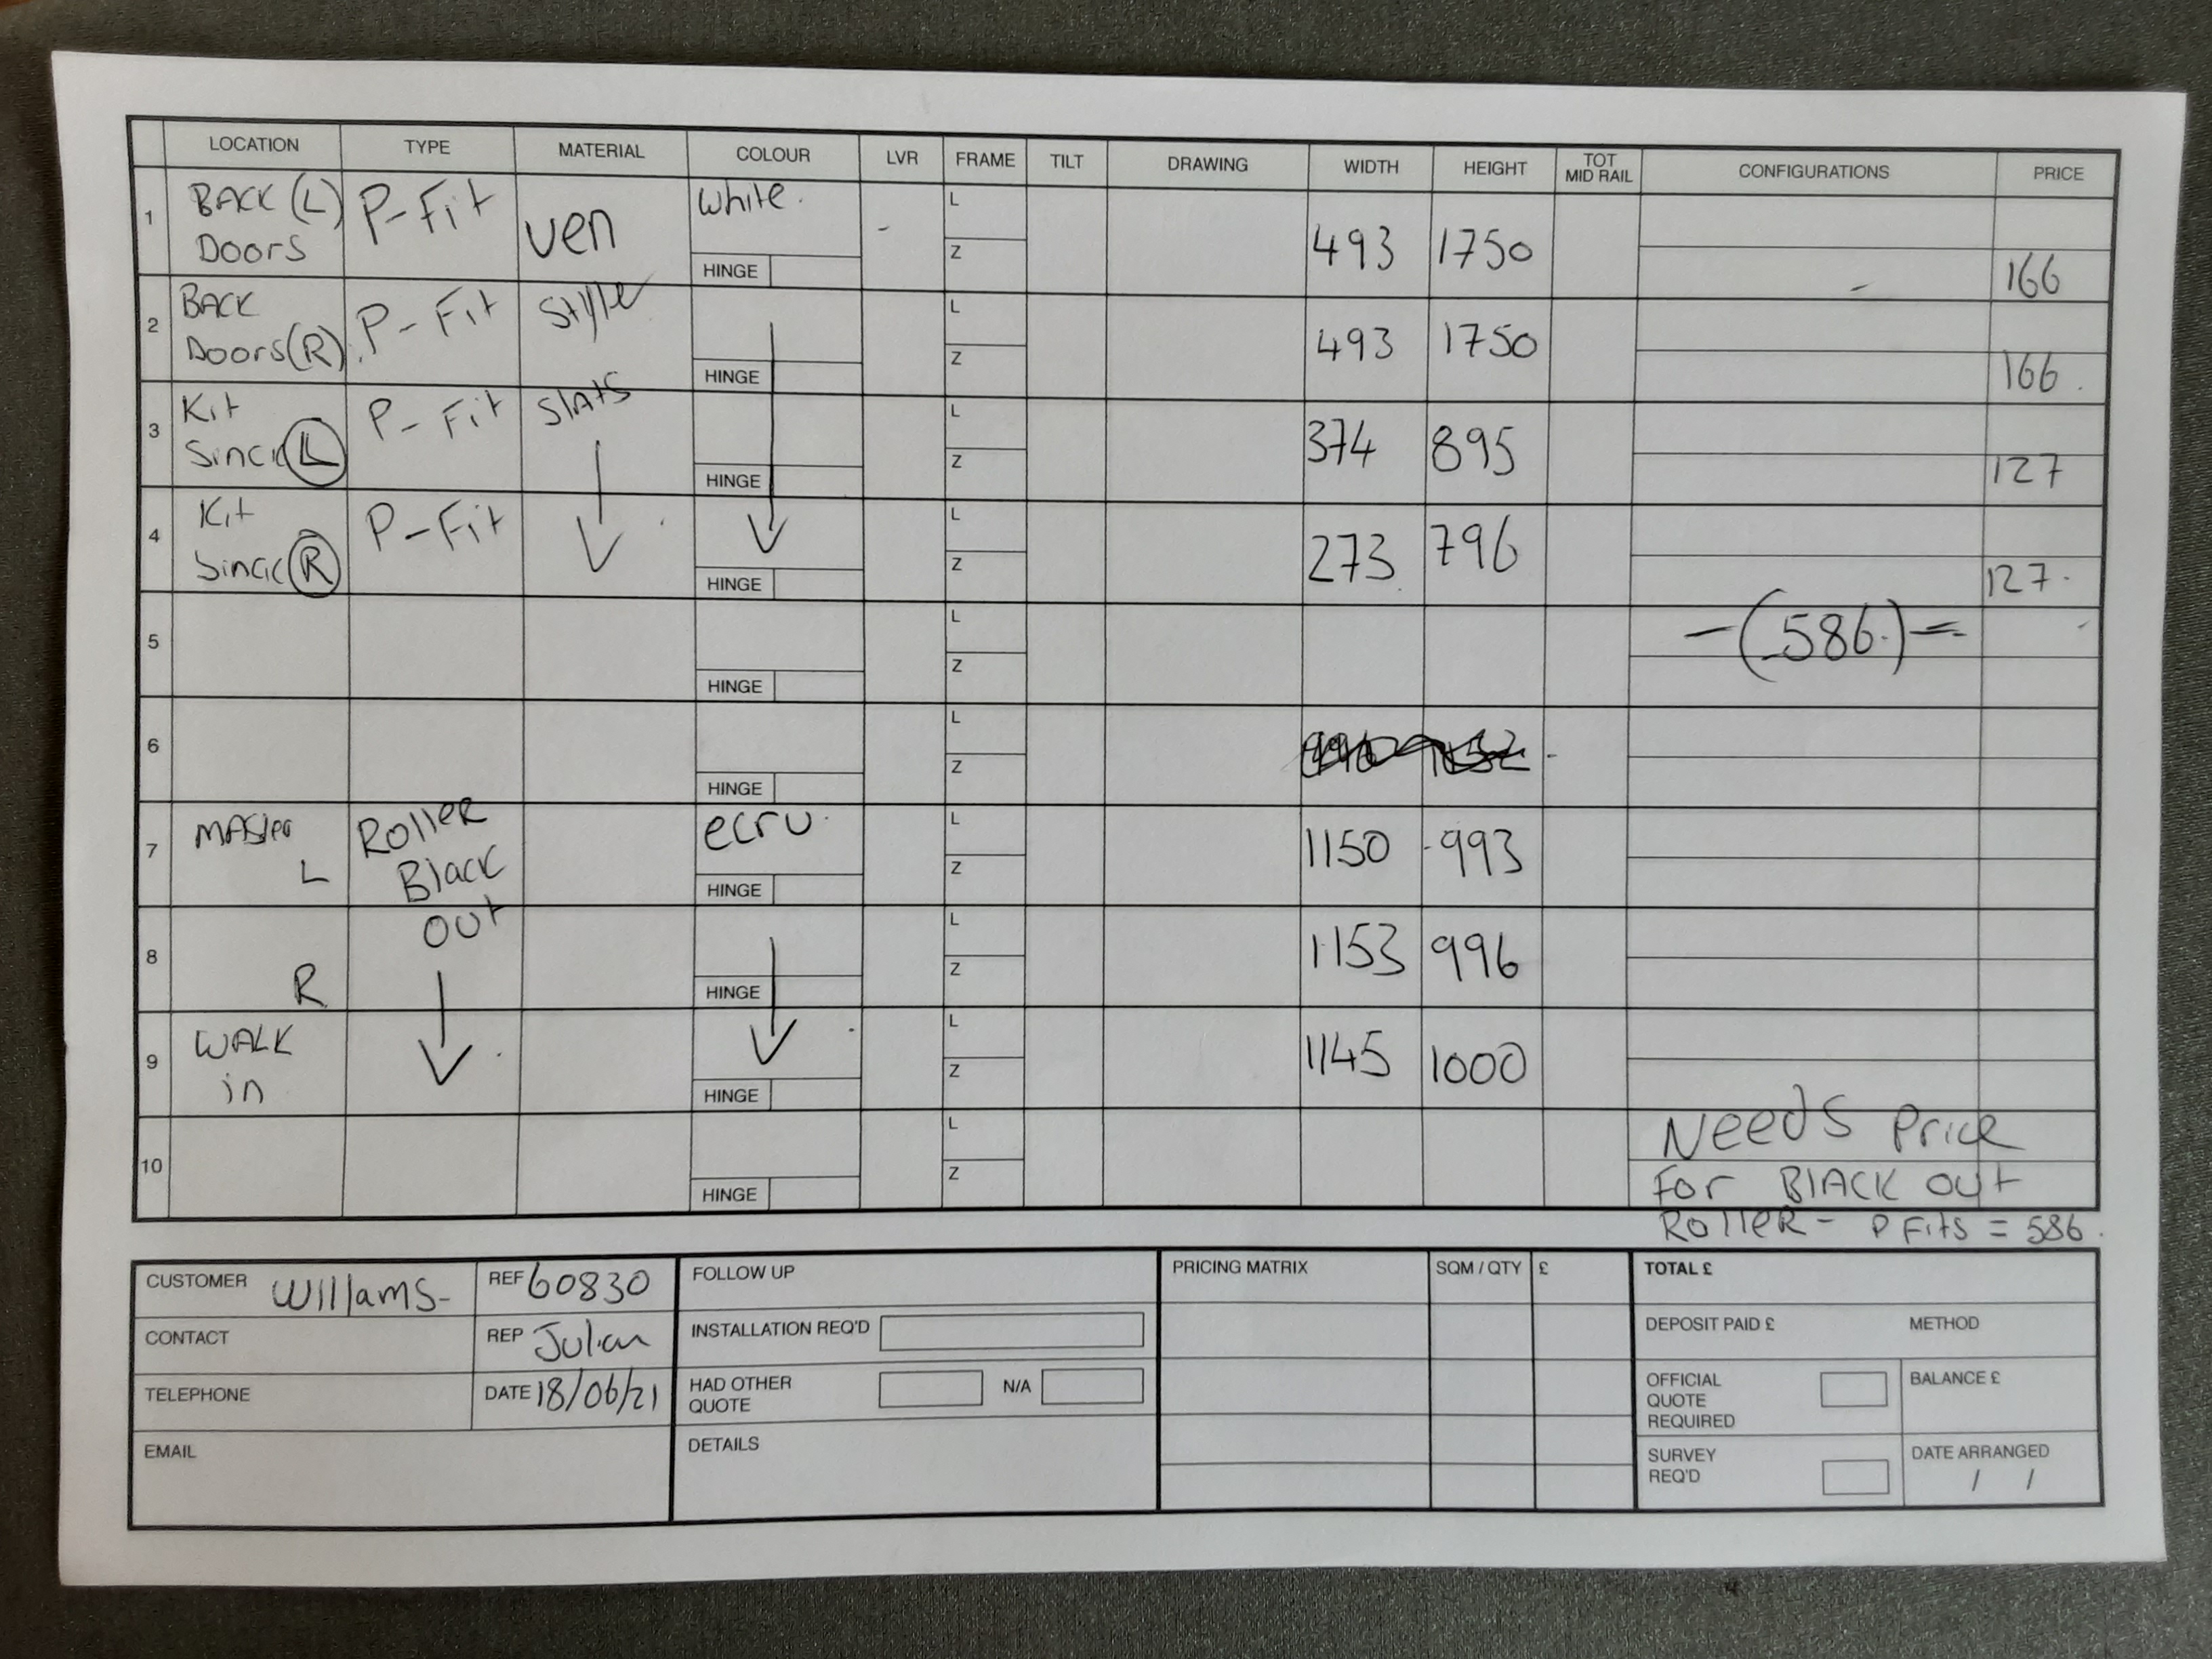 LOCATION TYPE MATERIAL COLOUR LVR FRAME TILT DRAWING WIDTH HEIGHT TOT MID RAIL CONFIGURATIONS PRICE
1 BACK (L) P-Fit ven white. L 493 1750
Doors HINGE Z 166
2 BACK P-Fit Style L 493 1750
Doors (R) HINGE Z 166.
3 Kit P-Fit Slats L 374 895
(L) HINGE Z 127
4 Kit P-Fit L 273 796
(R) HINGE Z 127.
5 L -(586.)=
HINGE Z
6 L
HINGE Z
7 MASter Roller ecru. L 1150 993
L Black HINGE Z
8 out L 1153 996
R HINGE Z
9 WALK L 1145 1000
in HINGE Z
10 L Needs Price
HINGE Z For BlACK out
RolleR - P Fits = 586.
CUSTOMER Williams- REF 60830 FOLLOW UP PRICING MATRIX SQM / QTY £ TOTAL £
CONTACT REP Julian INSTALLATION REQ'D DEPOSIT PAID £ METHOD
TELEPHONE DATE 18/06/21 HAD OTHER QUOTE N/A OFFICIAL QUOTE REQUIRED BALANCE £
EMAIL DETAILS SURVEY REQ'D DATE ARRANGED
/ /